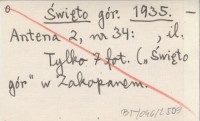 Święto gór. 1935. –
Antena 2, nr 34: , il.
Tylko 7 fot. („Święto
gór" w Zakopanem.